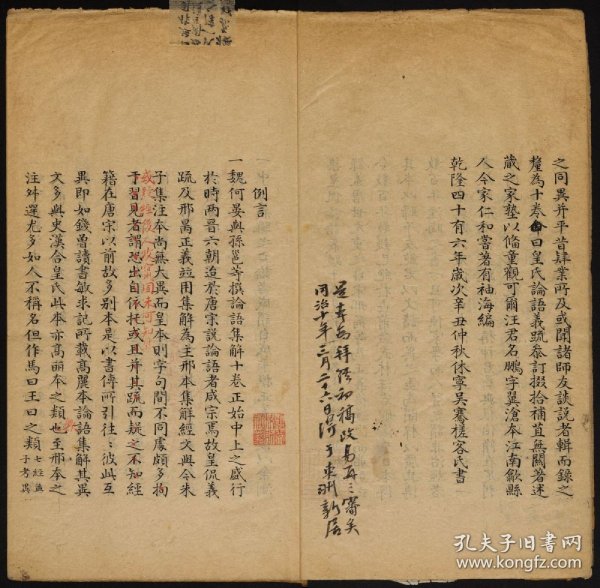 之同異并平昔肄業所及或聞諸師友談説者輯而錄之
釐為十卷命曰皇氏論語義疏參訂掇拾補苴無關著述
藏之家塾以備童觀可爾汪君名鵬字翼滄本江南歙縣
人今家仁和嘗著有袖海編
乾隆四十有六年歲次辛丑仲秋休寧吳騫槎客氏書
是本為拜經初稿改易再三審矣
同治十年三月二十六日得于東洲新居
例言
一魏何晏與孫邕等撰論語集解十卷正始中上之盛行
於時兩晉六朝迨於唐宗説論語者咸宗焉故皇侃義
疏及邢昺正義竝用集解為主邢本集解經文與今朱
子集注本尚無大異而皇本則字句間不同處頗多拘
于習見者謂或出自依托或且并其疏而疑之不知經
籍在唐宋以前故多别本是以書傳所引往〻彼此互
異即如錢曾讀書敏求記所載高麗本論語集解其異
文多與史漢合皇氏此本亦高麗本之類也至邢本之
注舛還尤多如人不稱名但作馬曰王曰之類七經孟子考異
孔夫子旧书网
www.kongfz.com